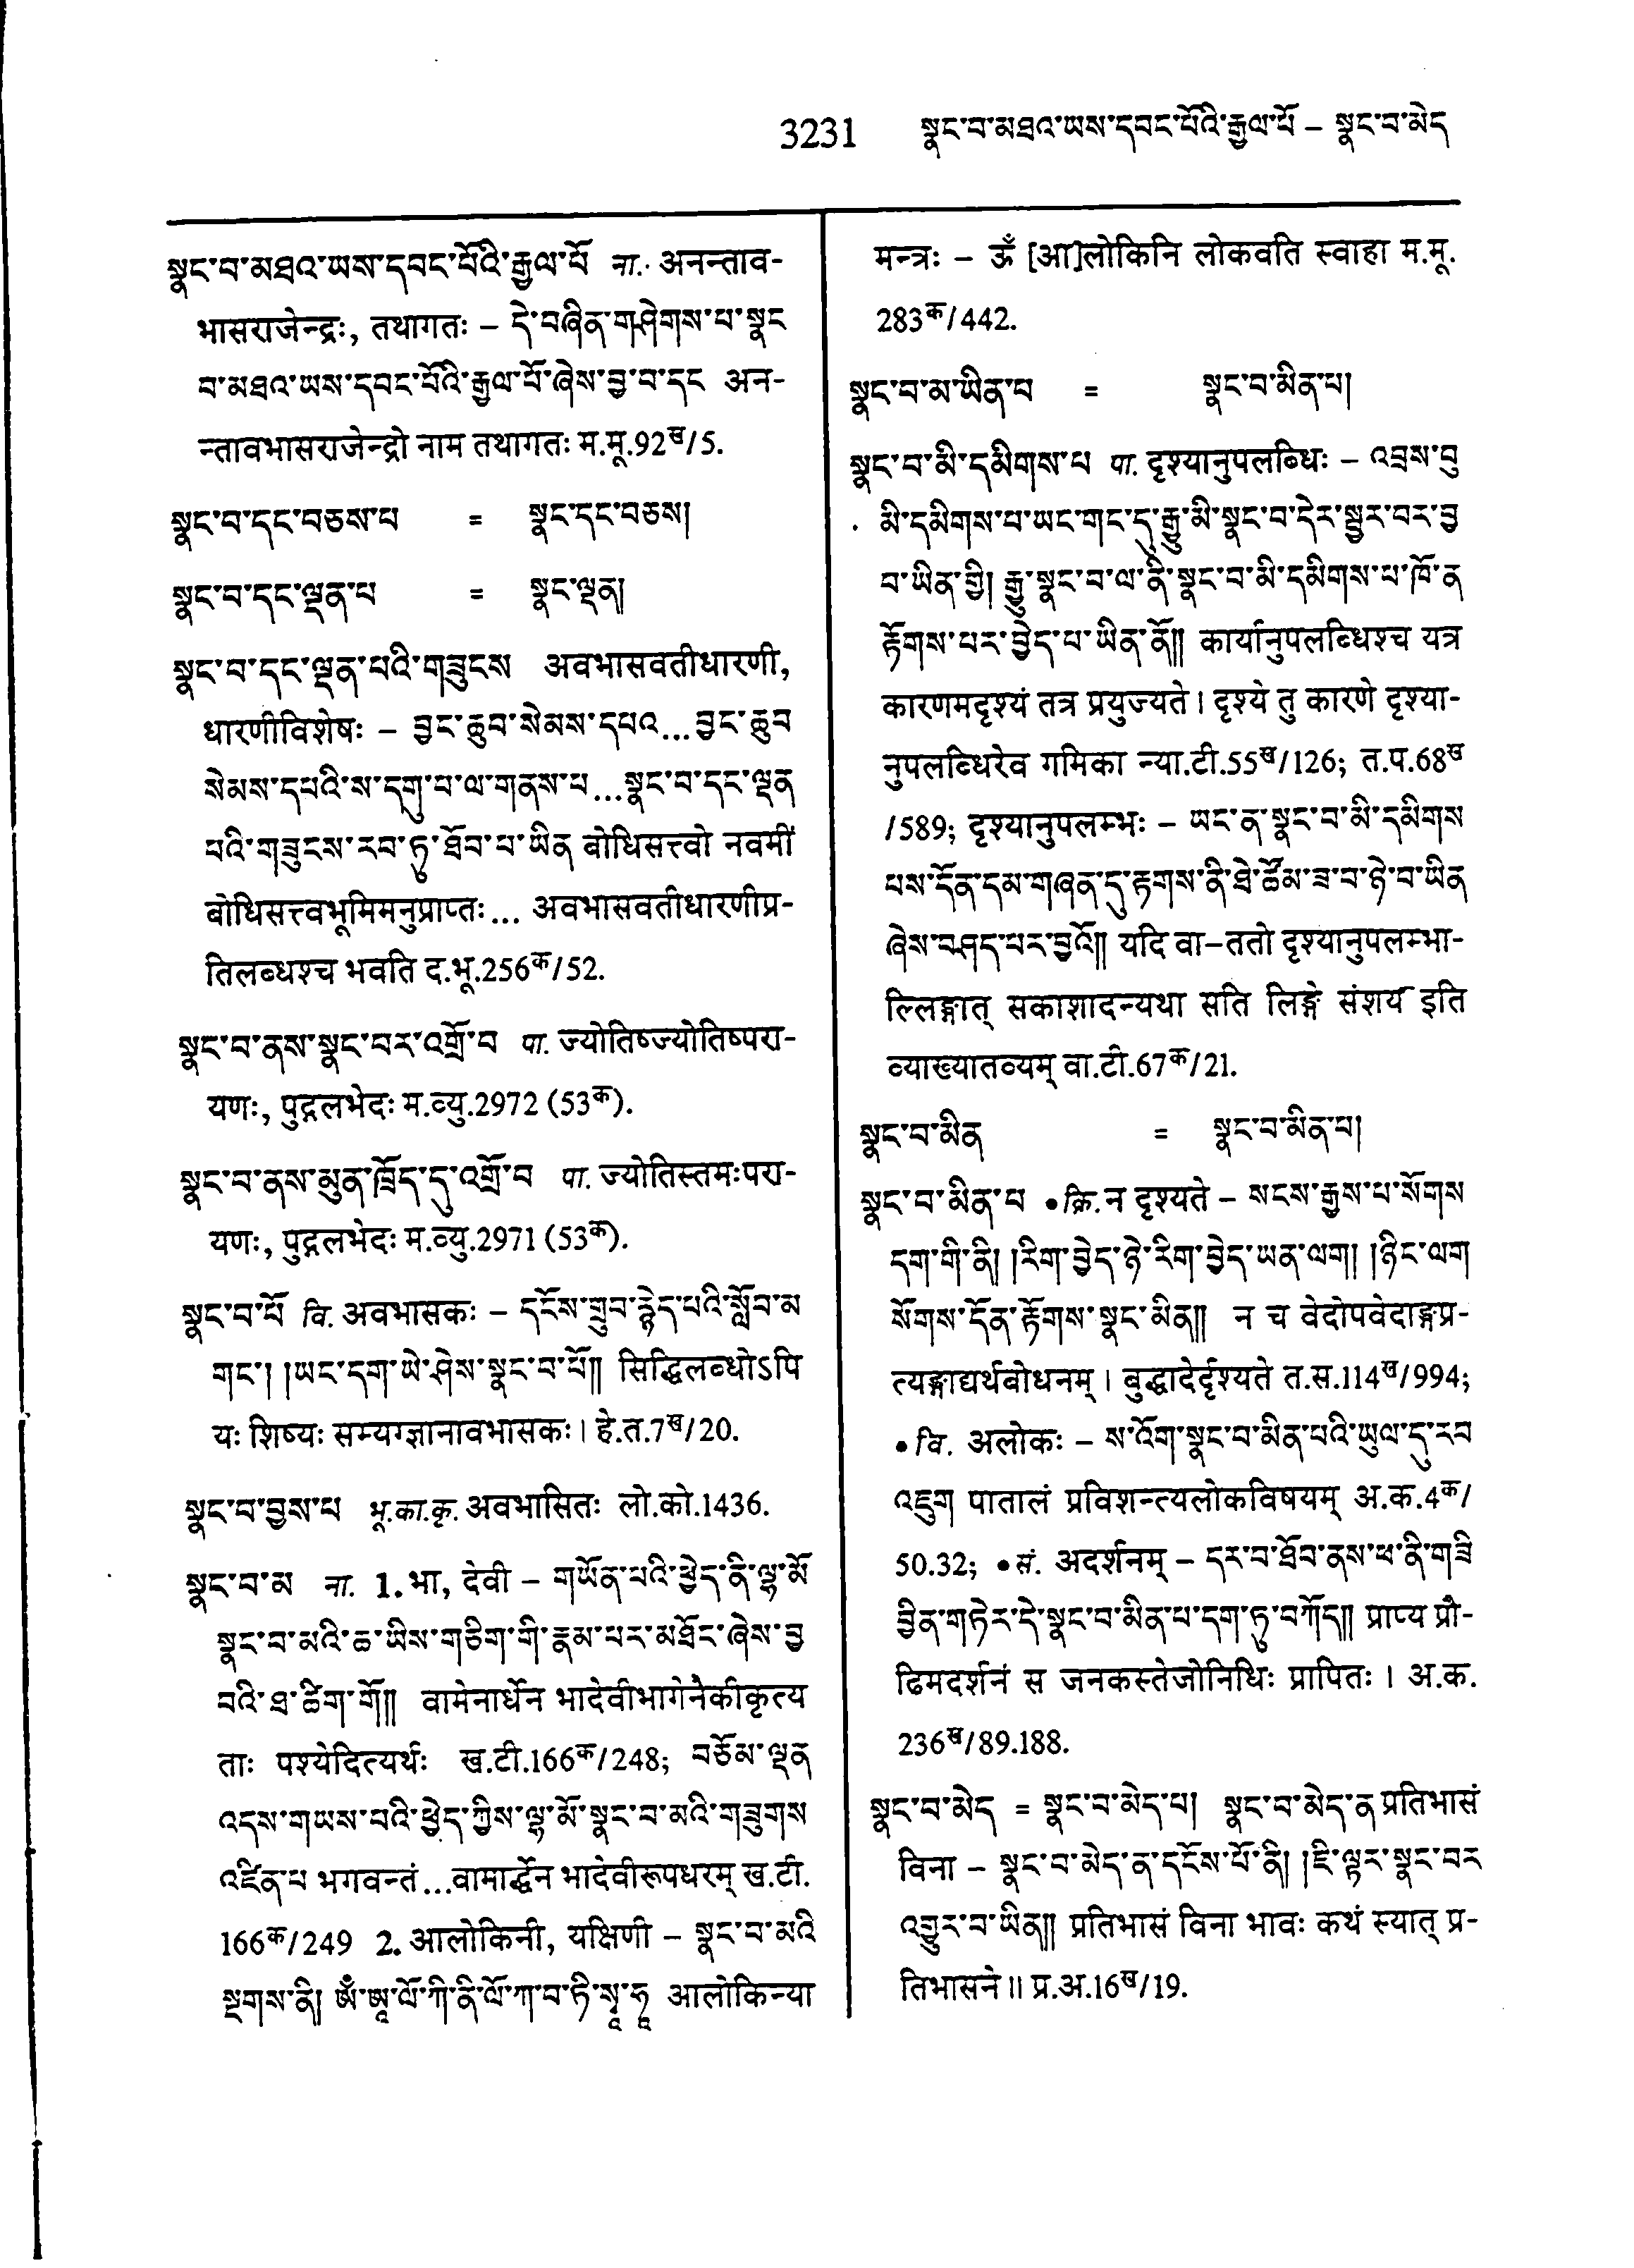 3231 སྣང་བ་མཐའ་ཡས་དབང་པོའི་རྒྱལ་པོ – སྣང་བ་མེད
སྣང་བ་མཐའ་ཡས་དབང་པོའི་རྒྱལ་པོ ना. अनन्ताव-
भासराजेन्द्रः, तथागतः – དེ་བཞིན་གཤེགས་པ་སྣང
བ་མཐའ་ཡས་དབང་པོའི་རྒྱལ་པོ་ཞེས་བྱ་བ་དང अन-
न्तावभासराजेन्द्रो नाम तथागतः म.मू.92ख/5.
སྣང་བ་དང་བཅས་པ = སྣང་དང་བཅས།
སྣང་བ་དང་ལྡན་པ = སྣང་ལྡན།
སྣང་བ་དང་ལྡན་པའི་གཟུངས अवभासवतीधारणी,
धारणीविशेषः – བྱང་ཆུབ་སེམས་དཔའ...བྱང་ཆུབ
སེམས་དཔའི་ས་དགུ་པ་ལ་གནས་པ...སྣང་བ་དང་ལྡན
པའི་གཟུངས་རབ་ཏུ་ཐོབ་པ་ཡིན बोधिसत्त्वो नवमीं
बोधिसत्त्वभूमिमनुप्राप्तः... अवभासवतीधारणीप्र-
तिलब्धश्च भवति द.भू.256क/52.
སྣང་བ་ནས་སྣང་བར་འགྲོ་བ पा. ज्योतिष्ज्योतिष्परा-
यणः, पुद्गलभेदः म.व्यु.2972 (53क).
སྣང་བ་ནས་མུན་ཁྲོད་དུ་འགྲོ་བ पा. ज्योतिस्तमःपरा-
यणः, पुद्गलभेदः म.व्यु.2971 (53क).
སྣང་བ་པོ वि. अवभासकः – དངོས་གྲུབ་རྙེད་པའི་སློབ་མ
གང་། །ཡང་དག་ཡེ་ཤེས་སྣང་བ་པོ།། सिद्धिलब्धोऽपि
यः शिष्यः सम्यग्ज्ञानावभासकः। हे.त.7ख/20.
སྣང་བ་བྱས་པ भू.का.कृ. अवभासितः लो.को.1436.
སྣང་བ་མ ना. 1. भा, देवी – གཡོན་པའི་ཕྱེད་ནི་ལྷ་མོ
སྣང་བ་མའི་ཆ་ཡིས་གཅིག་གི་རྣམ་པར་མཐོང་ཞེས་བྱ
བའི་ཐ་ཚིག་གོ།། वामेनार्धेन भादेवीभागेनैकीकृत्य
ताः पश्येदित्यर्थः ख.टी.166क/248; བཅོམ་ལྡན
འདས་གཡས་པའི་ཕྱེད་ཀྱིས་ལྷ་མོ་སྣང་བ་མའི་གཟུགས
འཛིན་པ भगवन्तं...वामार्द्धेन भादेवीरूपधरम् ख.टी.
166क/249 2. आलोकिनी, यक्षिणी – སྣང་བ་མའི
སྔགས་ནི། ཨོཾ་ཨཱ་ལོ་ཀི་ནི་ལོ་ཀ་བ་ཏི་སྭཱ་ཧཱ आलोकिन्या
मन्त्रः – ॐ [आ]लोकिनि लोकवति स्वाहा म.मू.
283क/442.
སྣང་བ་མ་ཡིན་པ = སྣང་བ་མིན་པ།
སྣང་བ་མི་དམིགས་པ पा. दृश्यानुपलब्धिः – འབྲས་བུ
མི་དམིགས་པ་ཡང་གང་དུ་རྒྱུ་མི་སྣང་བ་དེར་སྦྱར་བར་བྱ
བ་ཡིན་གྱི། རྒྱུ་སྣང་བ་ལ་ནི་སྣང་བ་མི་དམིགས་པ་ཁོ་ན
རྟོགས་པར་བྱེད་པ་ཡིན་ནོ།། कार्यानुपलब्धिश्च यत्र
कारणमदृश्यं तत्र प्रयुज्यते। दृश्ये तु कारणे दृश्या-
नुपलब्धिरेव गमिका न्या.टी.55ख/126; त.प.68ख
/589; दृश्यानुपलम्भः – ཡང་ན་སྣང་བ་མི་དམིགས
པས་དོན་དམ་གཞན་དུ་རྟགས་ནི་ཐེ་ཚོམ་ཟ་བ་ཉེ་བ་ཡིན
ཞེས་བཤད་པར་བྱའོ།། यदि वा–ततो दृश्यानुपलम्भा-
ल्लिङ्गात् सकाशादन्यथा सति लिङ्गे संशय इति
व्याख्यातव्यम् वा.टी.67क/21.
སྣང་བ་མིན = སྣང་བ་མིན་པ།
སྣང་བ་མིན་པ •क्रि. न दृश्यते – སངས་རྒྱས་པ་སོགས
དག་གི་ནི། །རིག་བྱེད་ཉེ་རིག་བྱེད་ཡན་ལག། །ཉིང་ལག
སོགས་དོན་རྟོགས་སྣང་མིན།། न च वेदोपवेदाङ्गप्र-
त्यङ्गाद्यर्थबोधनम्। बुद्धादेर्दृश्यते त.स.114ख/994;
•वि. अलोकः – ས་འོག་སྣང་བ་མིན་པའི་ཡུལ་དུ་རབ
འཇུག पातालं प्रविशन्त्यलोकविषयम् अ.क.4क/
50.32; •सं. अदर्शनम् – དར་བ་ཐོབ་ནས་ཕ་ནི་གཟི
བྱིན་གཏེར་དེ་སྣང་བ་མིན་པ་དག་ཏུ་བཀོད།། प्राप्य प्रौ-
ढिमदर्शनं स जनकस्तेजोनिधिः प्रापितः। अ.क.
236ख/89.188.
སྣང་བ་མེད = སྣང་བ་མེད་པ། སྣང་བ་མེད་ན प्रतिभासं
विना – སྣང་བ་མེད་ན་དངོས་པོ་ནི། །ཇི་ལྟར་སྣང་བར
འགྱུར་བ་ཡིན།། प्रतिभासं विना भावः कथं स्यात् प्र-
तिभासने॥ प्र.अ.16ख/19.